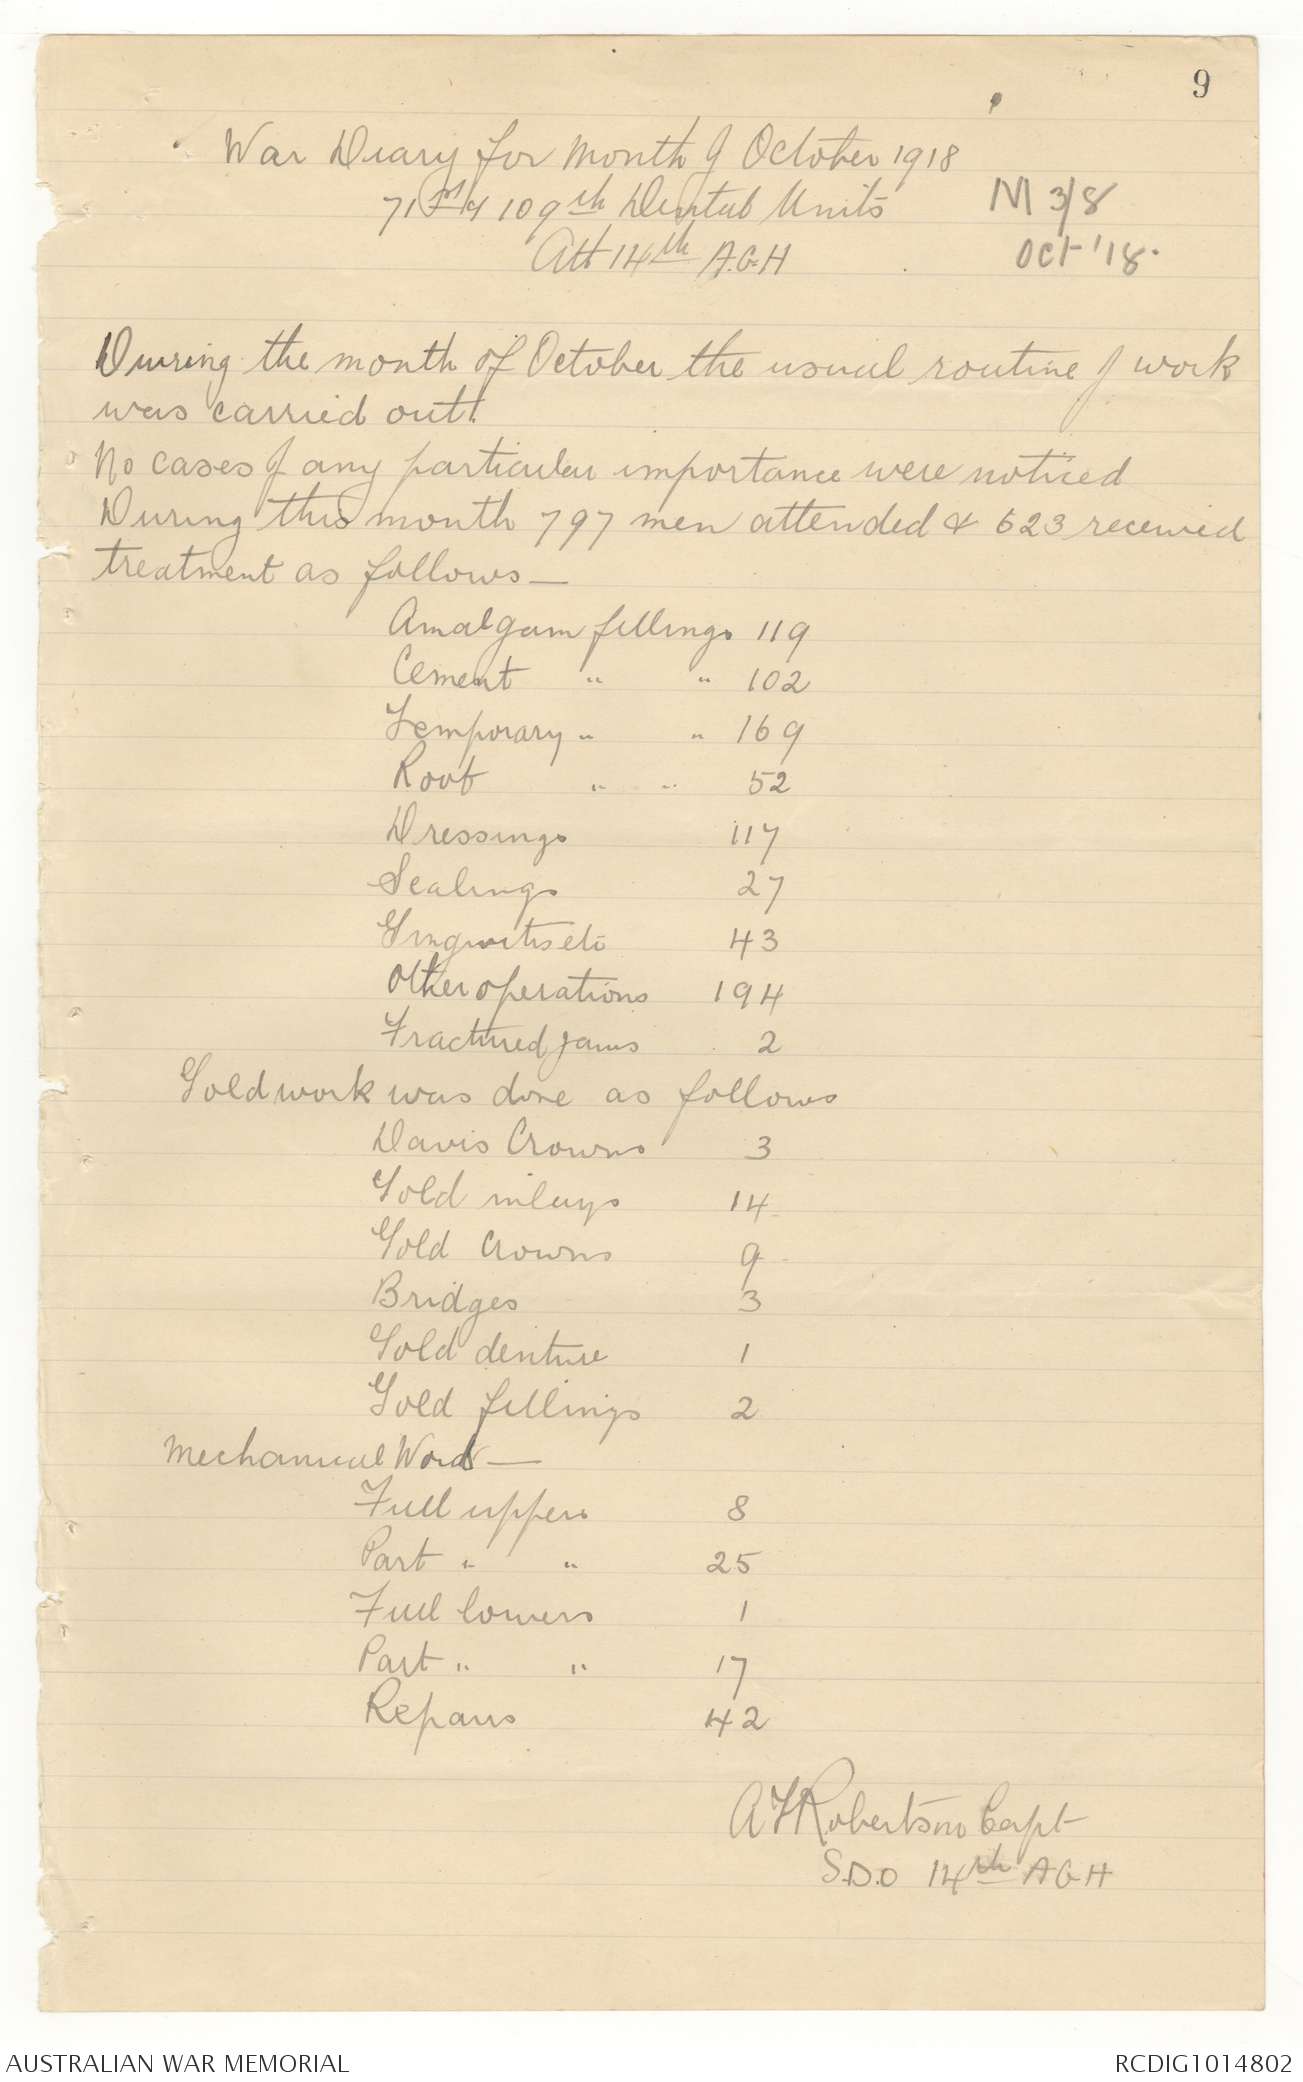 9
War Diary for Month of October 1918
71st & 109th Dental Units
Att 14th A.G.H
M 3/8
Oct '18.
During the month of October the usual routine of work
was carried out.
No cases of any particular importance were noticed
During this month 797 men attended & 623 received
treatment as follows —
Amalgam fillings 119
Cement " " 102
Temporary " " 169
Root " " 52
Dressings 117
Scalings 27
Gingivitis etc 43
Other operations 194
Fractured jaws 2
Gold work was done as follows
Davis Crowns 3
Gold inlays 14
Gold Crowns 9
Bridges 3
Gold denture 1
Gold fillings 2
Mechanical Work —
Full uppers 8
Part " " 25
Full lowers 1
Part " " 17
Repairs 42
A F Robertson Capt
S.D.O 14th A G H
AUSTRALIAN WAR MEMORIAL
RCDIG1014802